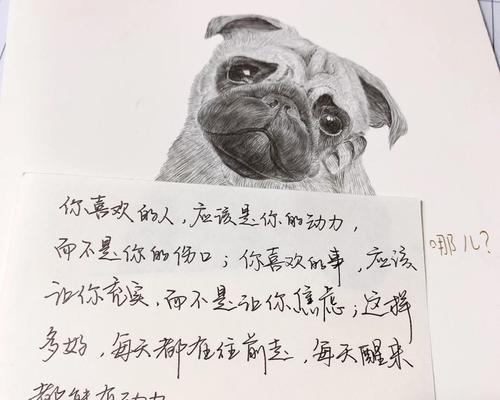 你喜欢的人，应该是你的动力，
而不是你的伤口；你喜欢的事，应该
让你充实，而不是让你焦虑；这样
多好，每天都在往前走，每天醒来
都能有动力
哪儿？